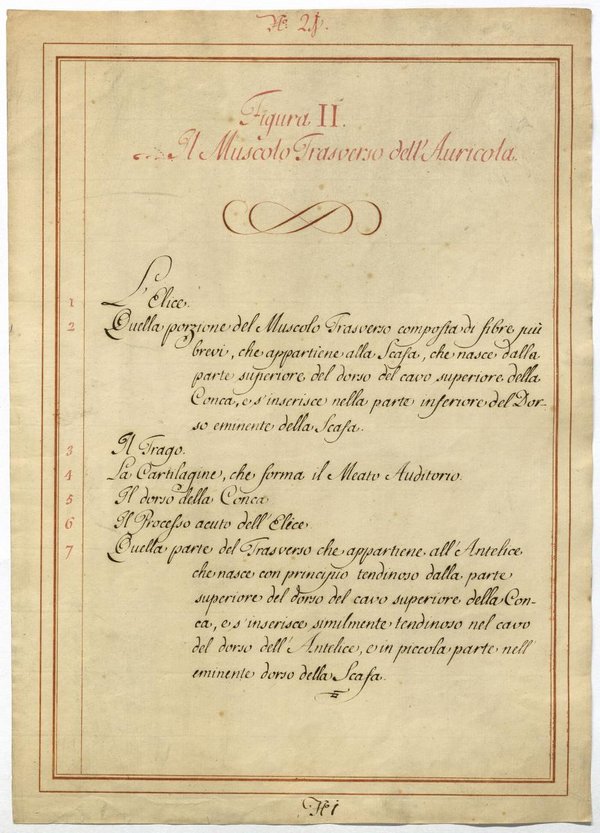 Figura II.
Il Muscolo Trasverso dell'Auricola.
1 L'Elice.
2 Quella porzione del Muscolo Trasverso composta di fibre più
brevi, che appartiene alla Scafa, che nasce dalla
parte superiore del dorso del cavo superiore della
Conca, e s'inserisce nella parte inferiore del Dor-
so eminente della Scafa.
3 Il Trago.
4 La Cartilagine, che forma il Meato Auditorio.
5 Il dorso della Conca
6 Il Processo acuto dell'Elice.
7 Quella parte del Trasverso che appartiene all'Antelice
che nasce con principio tendinoso dalla parte
superiore del dorso del cavo superiore della Con-
ca, e s'inserisce similmente tendinoso nel cavo
del dorso dell'Antelice, e in piccola parte nell'
eminente dorso della Scafa.